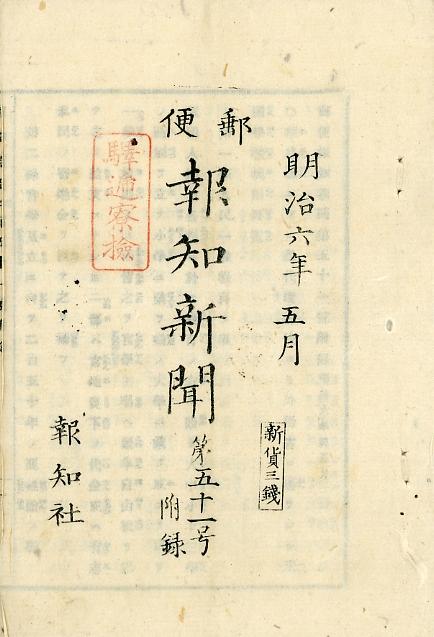 明治六年五月
新貨三錢
郵便
報知新聞
第五十一号
附録
驛逓寮檢
報知社